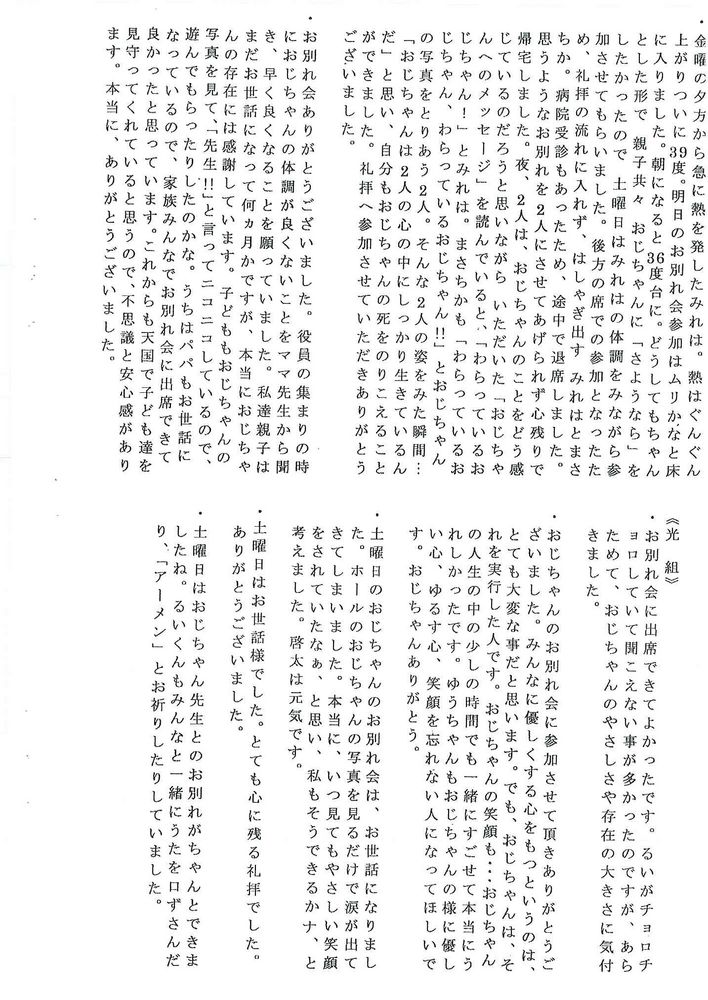 ・金曜の夕方から急に熱を発したみれは。熱はぐんぐん
上がりついに39度。明日のお別れ会参加はムリかなと床
に入りました。朝になると36度台に。どうしてもちゃん
とした形で 親子共々 おじちゃんに「さようなら」を
したかったので 土曜日はみれはの体調をみながら参
加させてもらいました。後方の席での参加となったた
め、礼拝の流れに入れず、はしゃぎ出す みれはとまさ
ちか。病院受診もあったため、途中で退席しました。
思うようなお別れを2人にさせてあげられず心残りで
帰宅しました。夜、2人は、おじちゃんのことをどう感
じているのだろうと思いながら いただいた「おじちゃ
んへのメッセージ」を読んでいると、「わらっているお
じちゃん!」とみれは。まさちかも「わらっているお
じちゃん、わらっているおじちゃん!!」とおじちゃん
の写真をとりあう2人。そんな2人の姿をみた瞬間…
「おじちゃんは2人の心の中にしっかり生きているん
だ」と思い、自分もおじちゃんの死をのりこえること
ができました。 礼拝へ参加させていただきありがとう
ございました。
・お別れ会ありがとうございました。役員の集まりの時
におじちゃんの体調が良くないことをママ先生から聞
き、早く良くなることを願っていました。私達親子は
まだお世話になって何ヵ月かですが、本当におじちゃ
んの存在には感謝しています。子どももおじちゃんの
写真を見て、「先生!!」と言ってニコニコしているので、
遊んでもらったりしたのかな。うちはパパもお世話に
なっているので、家族みんなでお別れ会に出席できて
良かったと思っています。これからも天国で子ども達を
見守ってくれていると思うので、不思議と安心感があり
ます。本当に、ありがとうございました。
《光 組》
・お別れ会に出席できてよかったです。るいがチョロチ
ョロしていて聞こえない事が多かったのですが、あら
ためて、おじちゃんのやさしさや存在の大きさに気付
きました。
・おじちゃんのお別れ会に参加させて頂きありがとうご
ざいました。みんなに優しくする心をもつというのは、
とても大変な事だと思います。でも、おじちゃんは、そ
れを実行した人です。おじちゃんの笑顔も・・・おじちゃん
の人生の中の少しの時間でも一緒にすごせて本当にう
れしかったです。ゆうちゃんもおじちゃんの様に優し
い心、ゆるす心、笑顔を忘れない人になってほしいで
す。おじちゃんありがとう。
・土曜日のおじちゃんのお別れ会は、お世話になりまし
た。ホールのおじちゃんの写真を見るだけで涙が出て
きてしまいました。本当に、いつ見てもやさしい笑顔
をされていたなぁ、と思い、私もそうできるかナ、と
考えました。啓太は元気です。
・土曜日はお世話様でした。とても心に残る礼拝でした。
ありがとうございました。
・土曜日はおじちゃん先生とのお別れがちゃんとできま
したね。るいくんもみんなと一緒にうたを口ずさんだ
り、「アーメン」とお祈りしたりしていました。